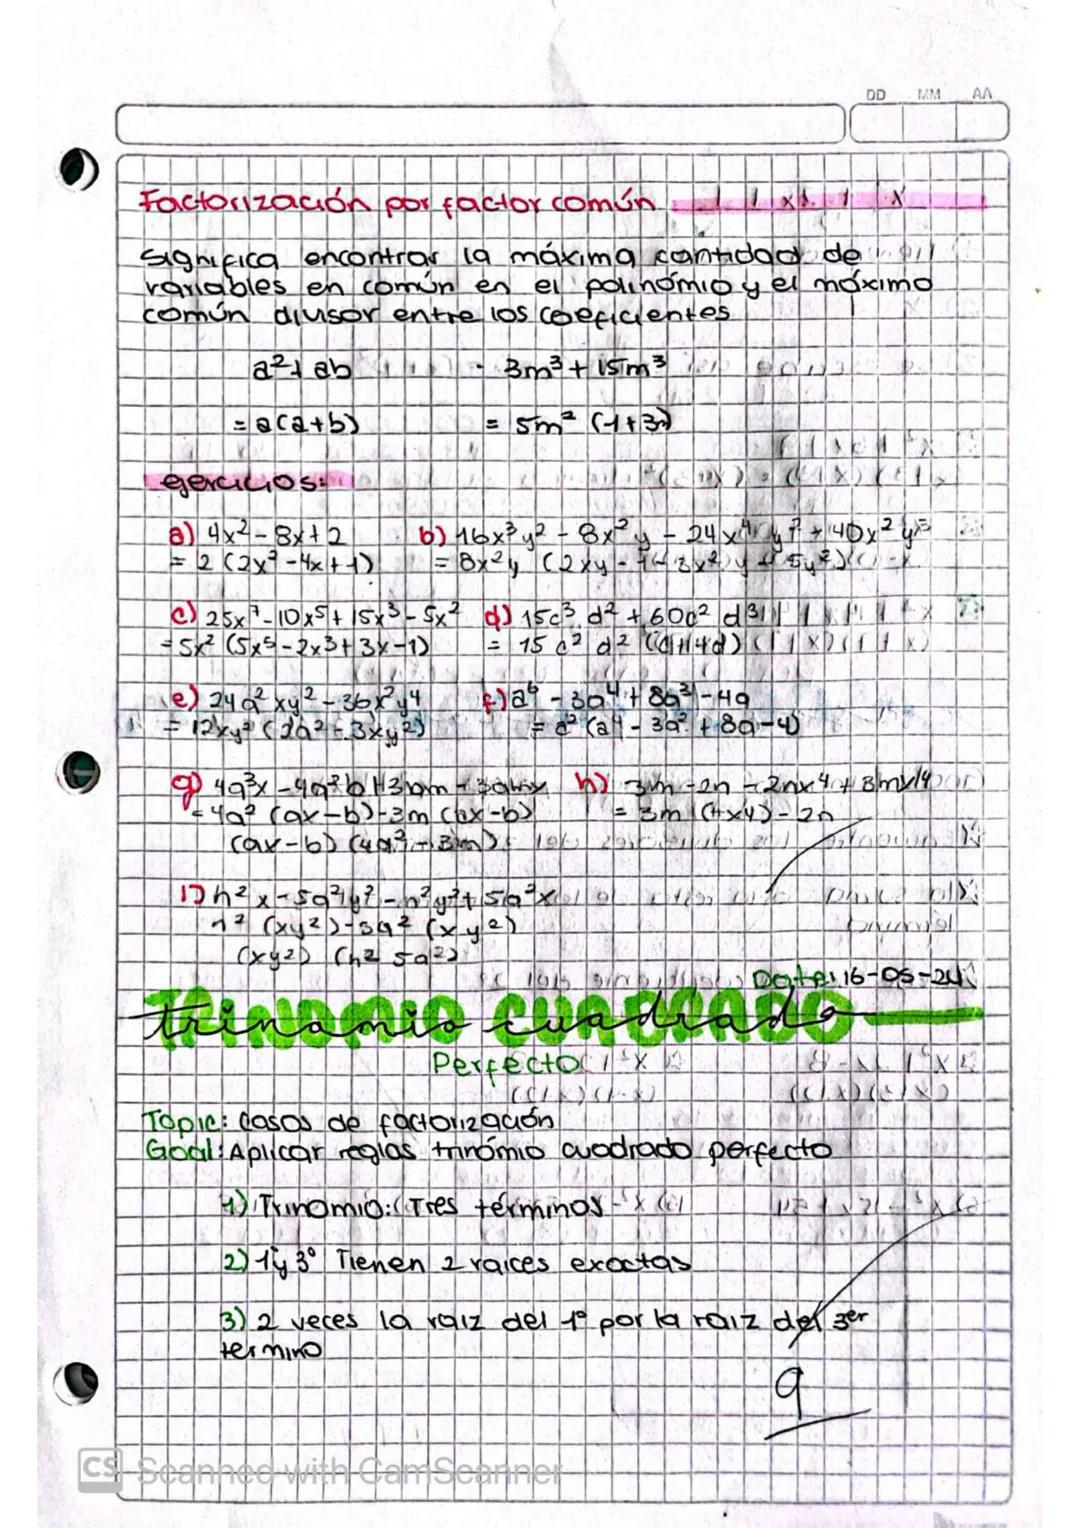 DD MM AA
Factorización por factor común
significa encontrar la máxima cantidad de
variables en común en el polinómio y el máximo
común divisor entre los coeficientes
a²+ab 3m³+15m³
= a(a+b) = 5m² (1+3)
ejercicios:
a) 4x²-8x+2 b) 16x³y² - 8x²y - 24x⁴y² + 40x²y³
= 2 (2x²-4x+1) = 8x²y (2xy-1-3x²y+5y²)
c) 25x⁷-10x⁵+15x³-5x² d) 15c³d²+60c²d³
= 5x² (5x⁵-2x³+3x-1) = 15c²d² (c+4d)
e) 24a²xy²-36x²y⁴ f) a⁶-3a⁴+8a³-4a
= 12xy² (2a²-3xy²) = a² (a⁴-3a²+8a-4)
g) 4a³x-4a²b+3bm-3amx h) 3m-2n-2nx⁴+3mx⁴
= 4a² (ax-b)-3m (ax-b) = 3m (1+x4)-2n
(ax-b) (4a²-3m)
i) n²x-5a²y²-n²y²+5a²x
n² (xy²)-5a² (xy²)
(xy²) (n² 5a²)
Date: 16-05-24
trinomio cuadrado
Perfecto
Topic: Casos de factorización
Goal: Aplicar reglas trinómio cuadrado perfecto
1) Trinomio: Tres términos
2) 1 y 3° Tienen 2 raices exactas
3) 2 veces la raíz del 1º por la raíz del 3er
termino
9
CS Scanned with CamScanner